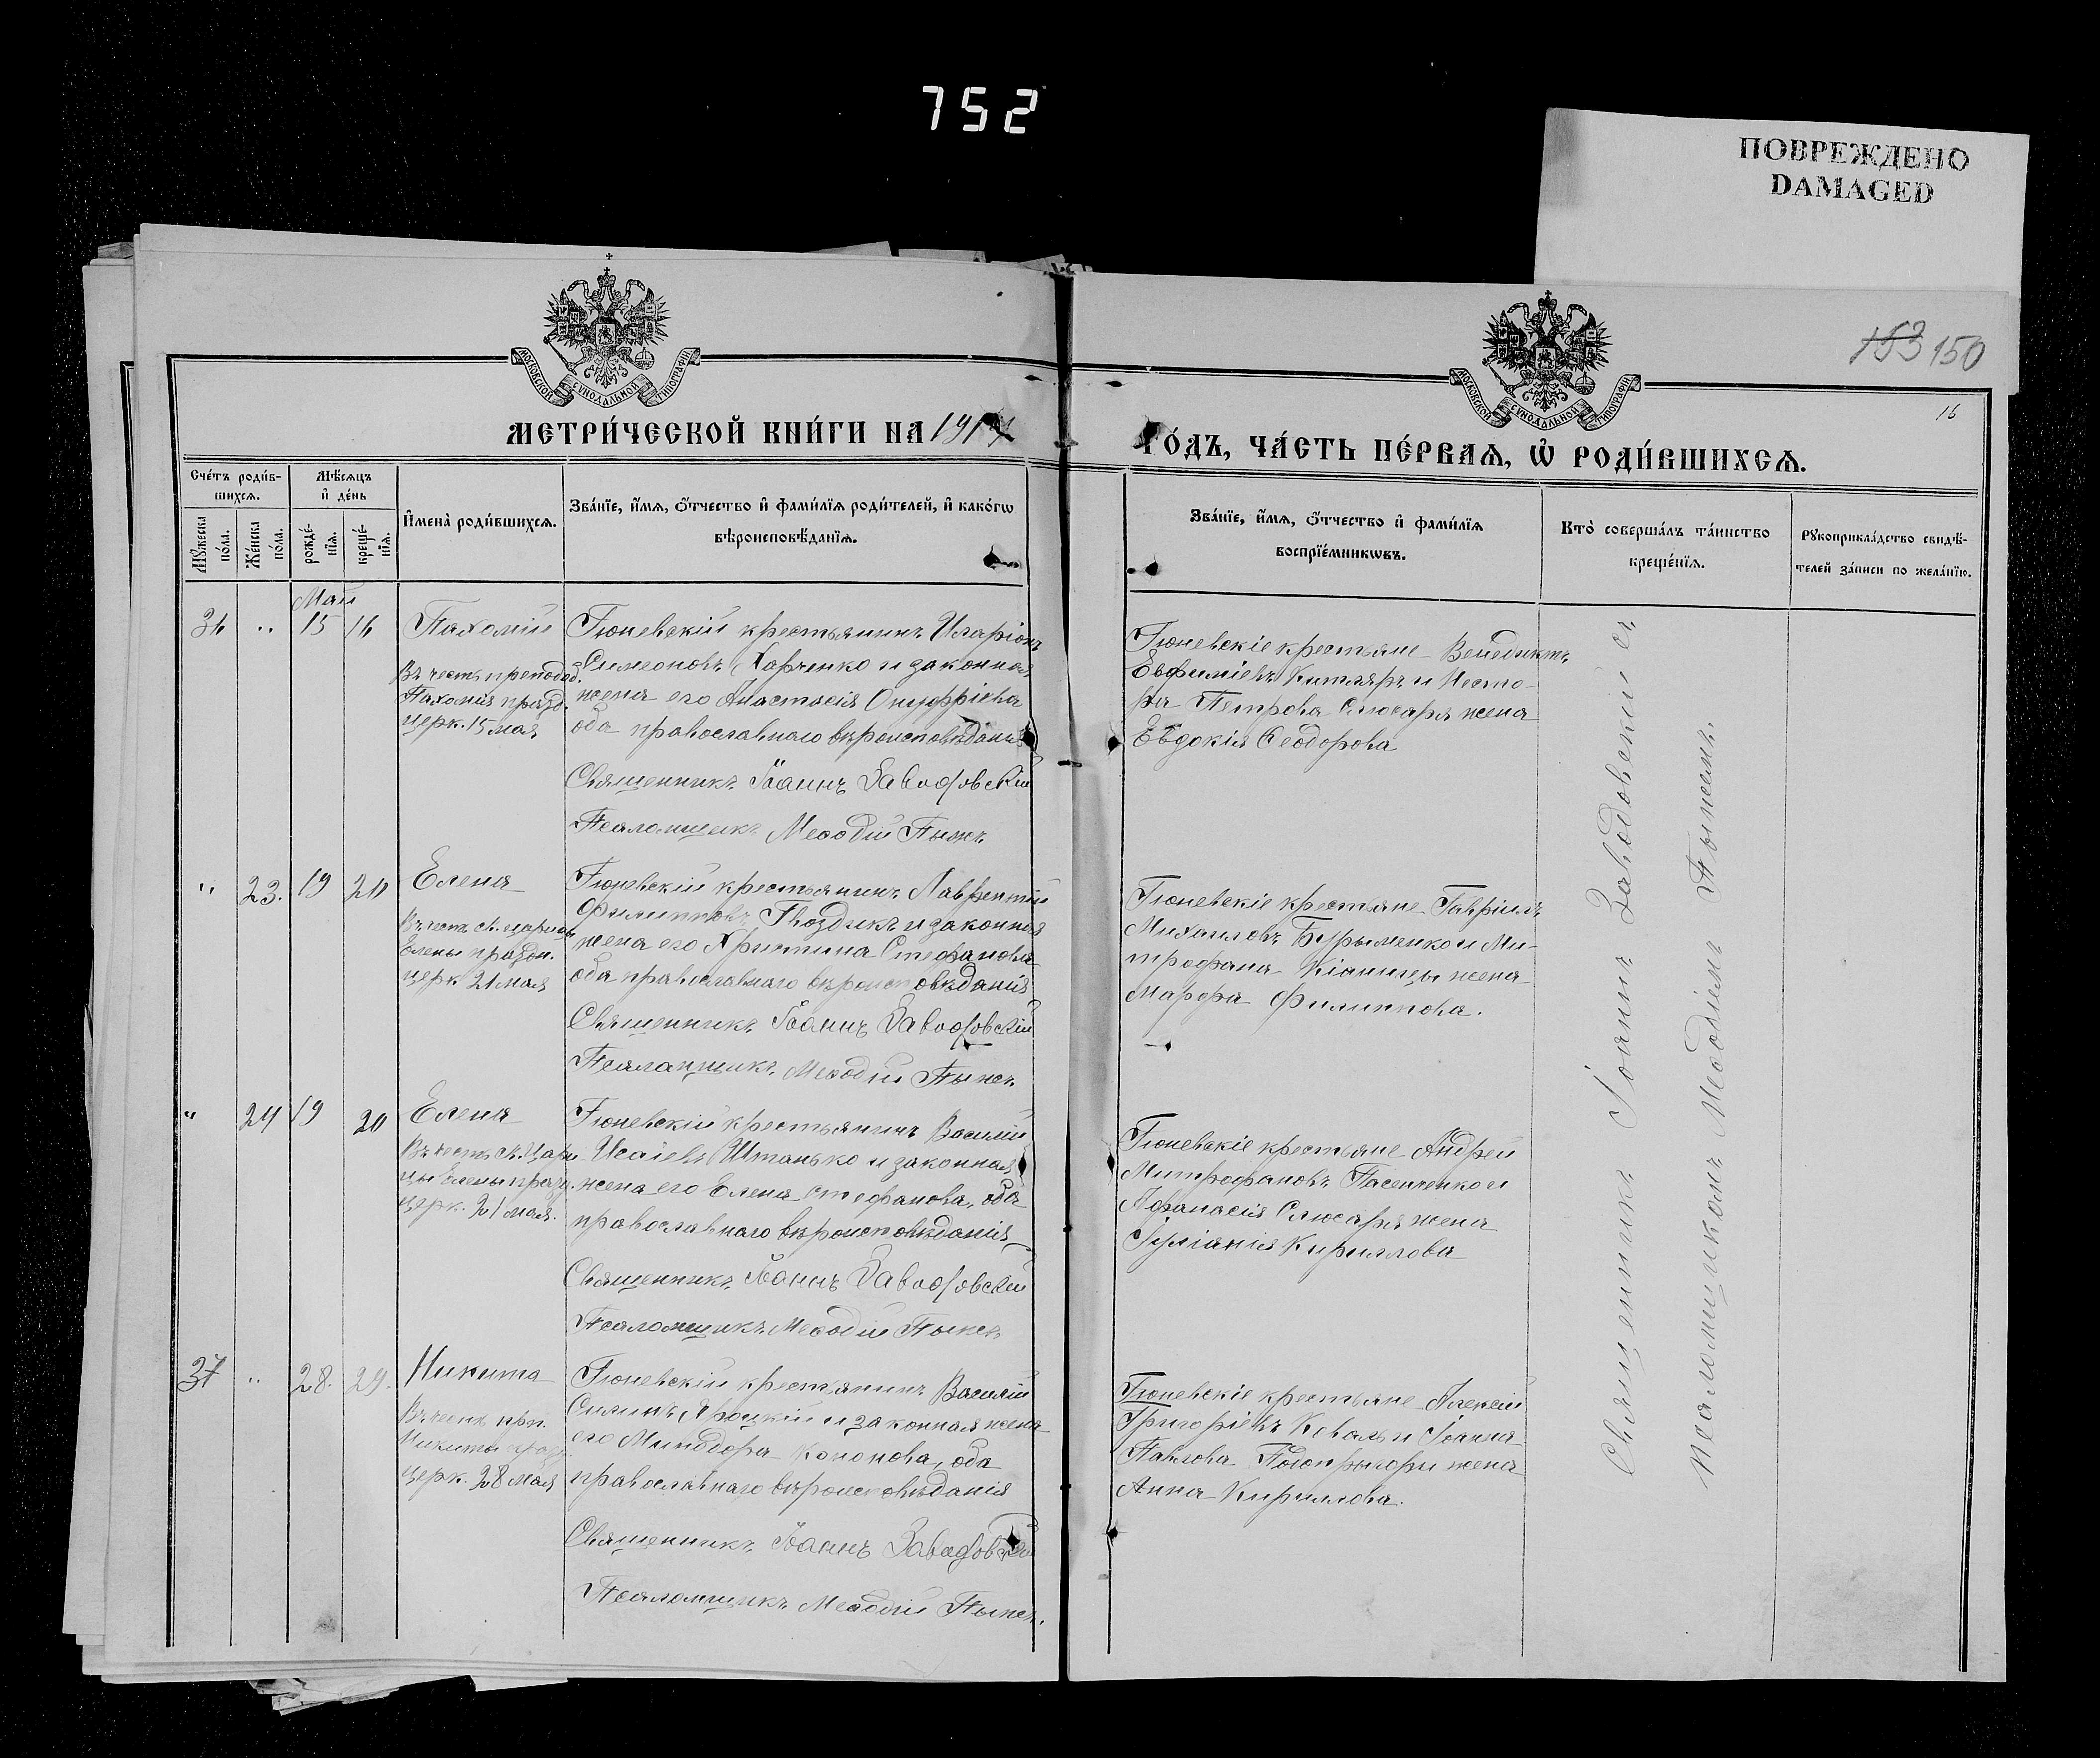 752
ПОВРЕЖДЕНО
DAMAGED
153 150
16
МОСКОВСКОЙ СѴНОДАЛЬНОЙ ТИПОГРАФІИ
МОСКОВСКОЙ СѴНОДАЛЬНОЙ ТИПОГРАФІИ
МЕТРИ́ЧЕСКОЙ КНИ́ГИ НА 191
ГО́ДЪ, ЧА́СТЬ ПЕ́РВАЯ, Ѡ РОДИ́ВШИХСЯ.
Сче́тъ роди́в-
шихся.
Мѣ́сяцъ
и де́нь
Мꙋ́жеска
по́ла.
Же́нска
по́ла.
рожде́-
нїя.
креще́-
нїя.
Имена̀ роди́вшихся.
Зва́нїе, и́мя, о́тчество и фами́лїя роди́телей, и како́гѡ
вѣроисповѣ́данїя.
Зва́нїе, и́мя, о́тчество и фами́лїя
воспрїе́мникѡвъ.
Кто̀ соверша́лъ та́инство
креще́нїя.
Рꙋкоприкла́дство свидѣ́-
телей за́писи по жела́нїю.
Май
36 " 15 16 Пахомій
Въ честь преподоб.
Пахомія празд.
церк. 15 мая
Гюневскій крестьянинъ Иларіонъ
Симеоновъ Харченко и законная
жена его Анастасія Онуфріева
оба православнаго вѣроисповѣданія
Священникъ Іоаннъ Заводовскій
Псаломщикъ Меѳодій Пыжъ
Гюневскіе крестьяне Венедиктъ
Евфиміевъ Китляръ и Несто-
ра Петрова Слюсаря жена
Евдокія Ѳеодорова
" 23. 19 20 Елена
Въ честь св. царицы
Елены праздн.
церк 21 мая
Гюневскій крестьянинъ Лаврентій
Филипповъ Гвоздикъ и законная
жена его Христина Стефанова
оба православнаго вѣроисповѣданія
Священникъ Іоаннъ Заводовскій
Псаломщикъ Меѳодій Пыжъ.
Гюневскіе крестьяне Гавріилъ
Михаиловъ Бурыменко и Ми-
трофана Кіяницы жена
Марфа Филиппова.
" 24 19 20 Елена
Въ честь св. Цари
цы Елены празд.
церк. 21 мая.
Гюневскій крестьянинъ Василій
Исаіевъ Штанько и законная
жена его Елена Стефанова, оба
православнаго вѣроисповѣданія
Священникъ Іоаннъ Заводовскій
Псаломщикъ Меѳодій Пыжъ
Гюневскіе крестьяне Андрей
Митрофановъ Пасенченко и
Афанасія Слюсаря жена
Іуліанія Кириллова
37 " 28. 29. Никита
Въ честь прп.
Никиты празд.
церк. 28 мая
Гюневскій крестьянинъ Василій
Силинъ Яроцкій и законная жена
его Миндора Кононова, оба
православнаго вѣроисповѣданія
Священникъ Іоаннъ Заводовскій
Псаломщикъ Меѳодій Пыжъ.
Гюневскіе крестьяне Алексій
Григоріевъ Коваль и Іоанна
Павлова жена
Анна Кириллова.
Священникъ Іоаннъ Заводовскій съ
псаломщикомъ Меѳодіемъ Пыжемъ.